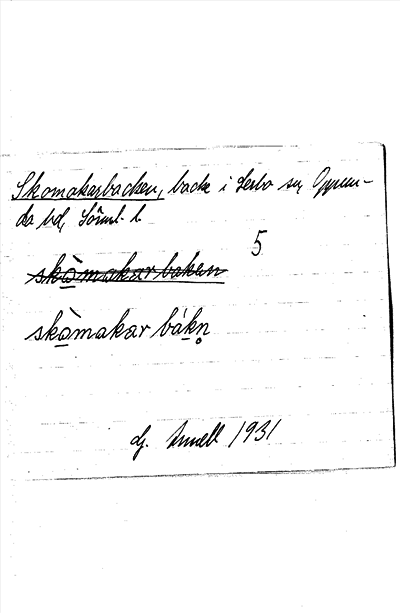 Skomakarbacken, backe i Lerbo sn, Oppun-
da hd, Söml. l.
5
skò̱makar bakan
skò̱makar báḵn̥
G. Arnell 1931